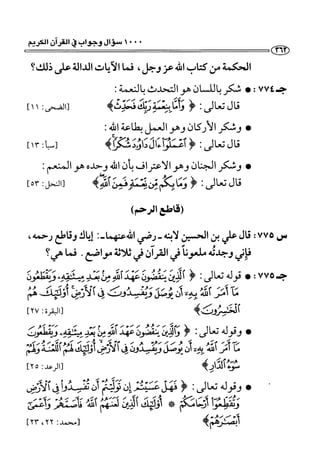 ١٠٠٠ سؤال وجواب في القرآن الكريم
٣٦٢
الحكمة من كتاب الله عز وجل، فما الآيات الدالة على ذلك؟
جـ ٧٧٤: • شكر باللسان وهو التحدث بالنعمة:
قال تعالى: ﴿ وَأَمَّا بِنِعْمَةِ رَبِّكَ فَحَدِّثْ ﴾ [الضحى: ١١]
• وشكر الأركان وهو العمل بطاعة الله:
قال تعالى: ﴿ اعْمَلُوا آلَ دَاوُودَ شُكْرًا ﴾ [سبأ: ١٣]
• وشكر الجنان وهو الاعتراف بأن الله وحده هو المنعم:
قال تعالى: ﴿ وَمَا بِكُم مِّن نِّعْمَةٍ فَمِنَ اللَّهِ ﴾ [النحل: ٥٣]
(قاطع الرحم)
س ٧٧٥: قال علي بن الحسين لابنه ـ رضي الله عنهما ـ: إياك وقاطع رحمه،
فإني وجدتُه ملعوناً في القرآن في ثلاثة مواضع. فما هي؟
جـ ٧٧٥: • قوله تعالى: ﴿ الَّذِينَ يَنقُضُونَ عَهْدَ اللَّهِ مِن بَعْدِ مِيثَاقِهِ وَيَقْطَعُونَ
مَا أَمَرَ اللَّهُ بِهِ أَن يُوصَلَ وَيُفْسِدُونَ فِي الْأَرْضِ أُولَٰئِكَ هُمُ
الْخَاسِرُونَ ﴾ [البقرة: ٢٧]
• وقوله تعالى: ﴿ وَالَّذِينَ يَنقُضُونَ عَهْدَ اللَّهِ مِن بَعْدِ مِيثَاقِهِ وَيَقْطَعُونَ
مَا أَمَرَ اللَّهُ بِهِ أَن يُوصَلَ وَيُفْسِدُونَ فِي الْأَرْضِ أُولَٰئِكَ لَهُمُ اللَّعْنَةُ وَلَهُمْ
سُوءُ الدَّارِ ﴾ [الرعد: ٢٥]
• وقوله تعالى: ﴿ فَهَلْ عَسَيْتُمْ إِن تَوَلَّيْتُمْ أَن تُفْسِدُوا فِي الْأَرْضِ
وَتُقَطِّعُوا أَرْحَامَكُمْ * أُولَٰئِكَ الَّذِينَ لَعَنَهُمُ اللَّهُ فَأَصَمَّهُمْ وَأَعْمَىٰ
أَبْصَارَهُمْ ﴾ [محمد: ٢٢، ٢٣]